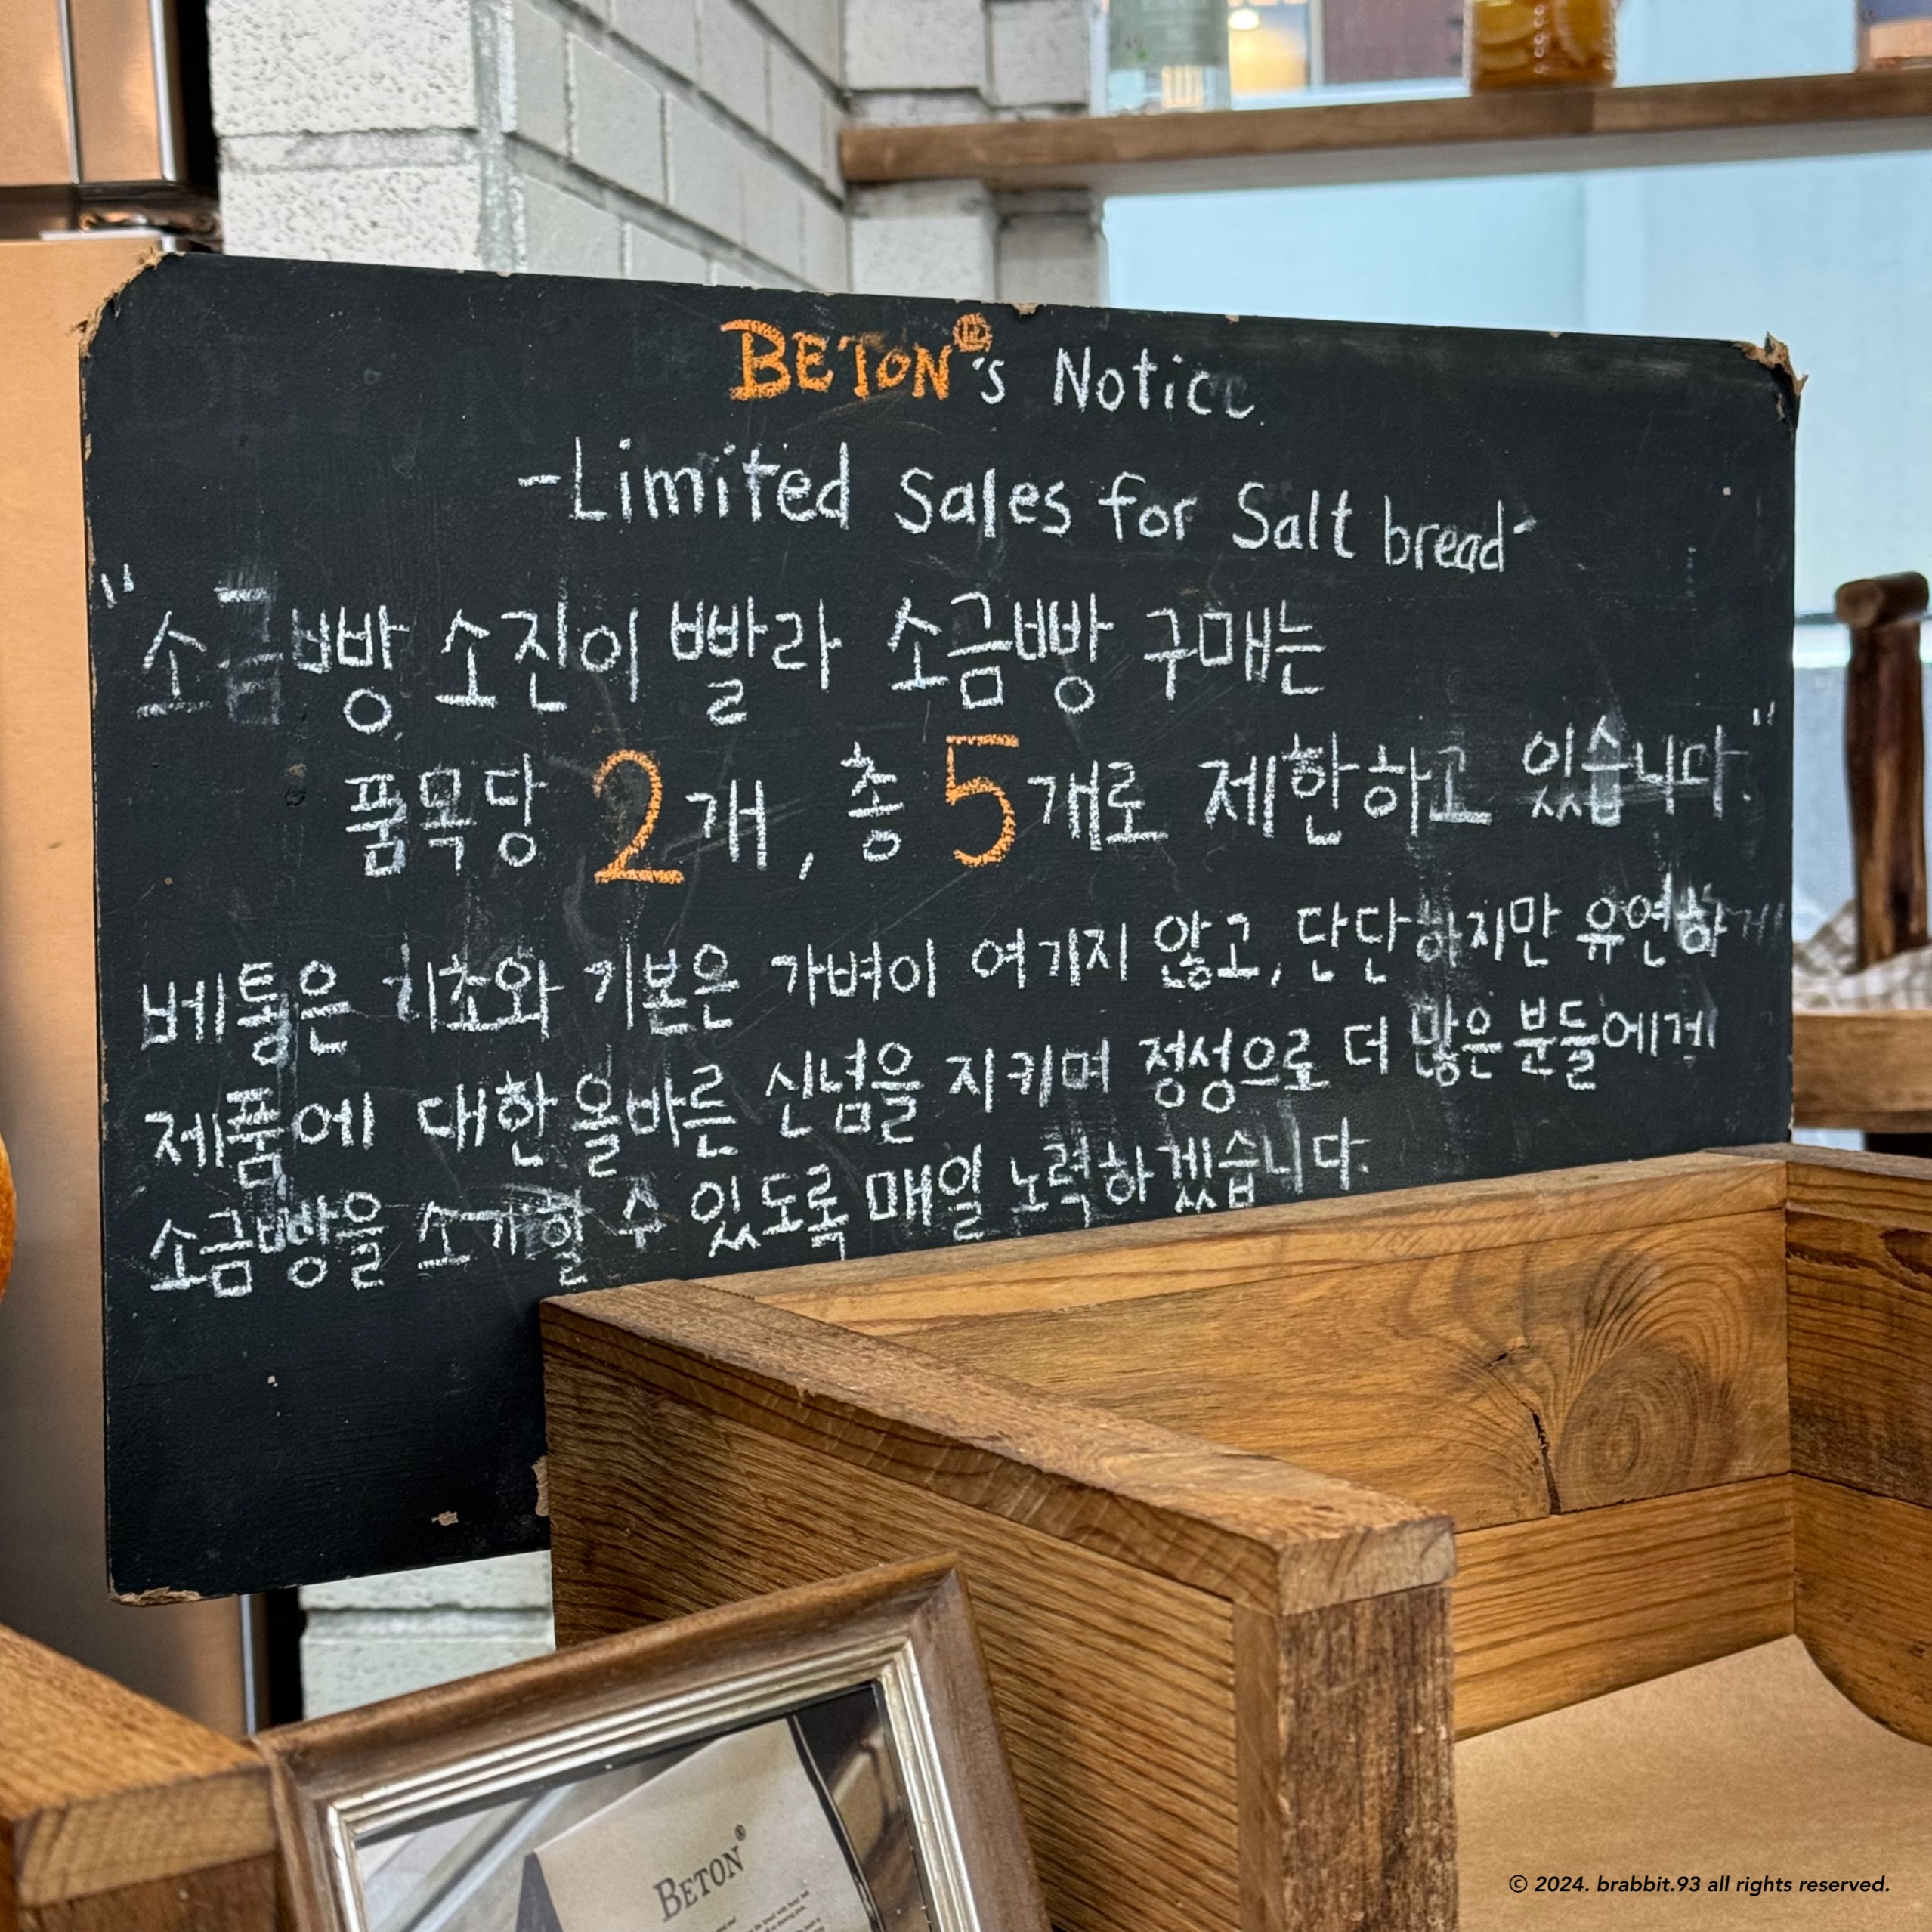 BETON®'s Notice
-Limited Sales for Salt bread-
"소금빵 소진이 빨라 소금빵 구매는
품목당 2개, 총 5개로 제한하고 있습니다."
베통은 기초와 기본은 가벼이 여기지 않고, 단단하지만 유연하게
제품에 대한 올바른 신념을 지키며 정성으로 더 많은 분들에게
소금빵을 소개할 수 있도록 매일 노력하겠습니다.
BETON®
© 2024. brabbit.93 all rights reserved.